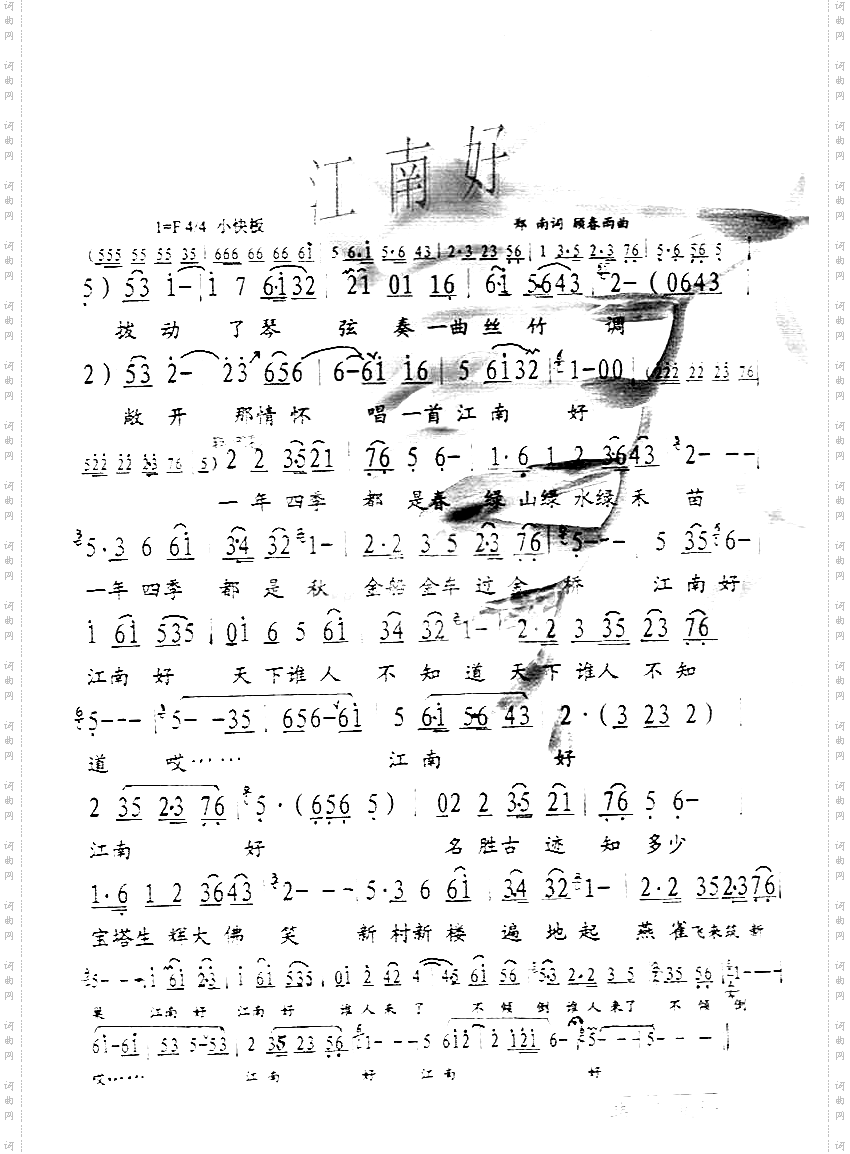 江南好
1=F 4/4 小快板
郑 南词 顾春雨曲
(555 55 55 35 | 666 66 66 6i | 5 6·i 5·6 43 | 2·3 23 56 | 1 3·5 2·3 76 | 5·6 56 5
5) 53 i- | i 7 6i32 | 2i 01 16 | 6i 5643 | 2- (0643
拨 动 了 琴 弦 奏 一曲 丝 竹 调
2) 53 2- 23 656 | 6-6i i6 | 5 6i32 | 1-00 | (222 22 23 76
敞 开 那情 怀 唱 一首 江 南 好
522 22 23 76 5) 2 2 3521 | 76 5 6- | 1·6 1 2 3643 2- --
一 年 四季 都 是春 绿 山绿 水绿 禾 苗
5·3 6 6i 3·4 32 1- | 2·2 3 5 2·3 76 | 5- -- 5 35 6-
一年 四季 都 是 秋 金船 金车 过 金 桥 江 南 好
i 6i 535 | 0i 6 5 6i 34 32 1- | 2·2 3 35 23 76
江南 好 天 下谁 人 不 知 道 天 下 谁人 不 知
5- -- | 5- -35 656-6i 5 6·i 56 43 2·(3 23 2)
道 哎…… 江 南 好
2 35 2·3 76 5·(656 5) 02 2 35 21 | 76 5 6-
江南 好 名 胜古 迹 知 多少
1·6 1 2 3643 2- -- | 5·3 6 6i 3·4 32 1- | 2·2 352·376
宝塔生 辉大 佛 笑 新 村新 楼 遍 地 起 燕 雀飞来筑 新
5- -- i 6i 2·3 | i 6i 535 0i2 42 4 45 6i 56 53 2·2 3 5 35 56 1---
巢 江南 好 江南 好 谁人 来 了 不 倾 倒 谁人 来了 不 倾 倒
6i-6i 53 5-53 | 2 35 23 56 1- -- 5 6i2 2 i2i 6- 5- --5- -- |
哎…… 江 南 好 江 南 好